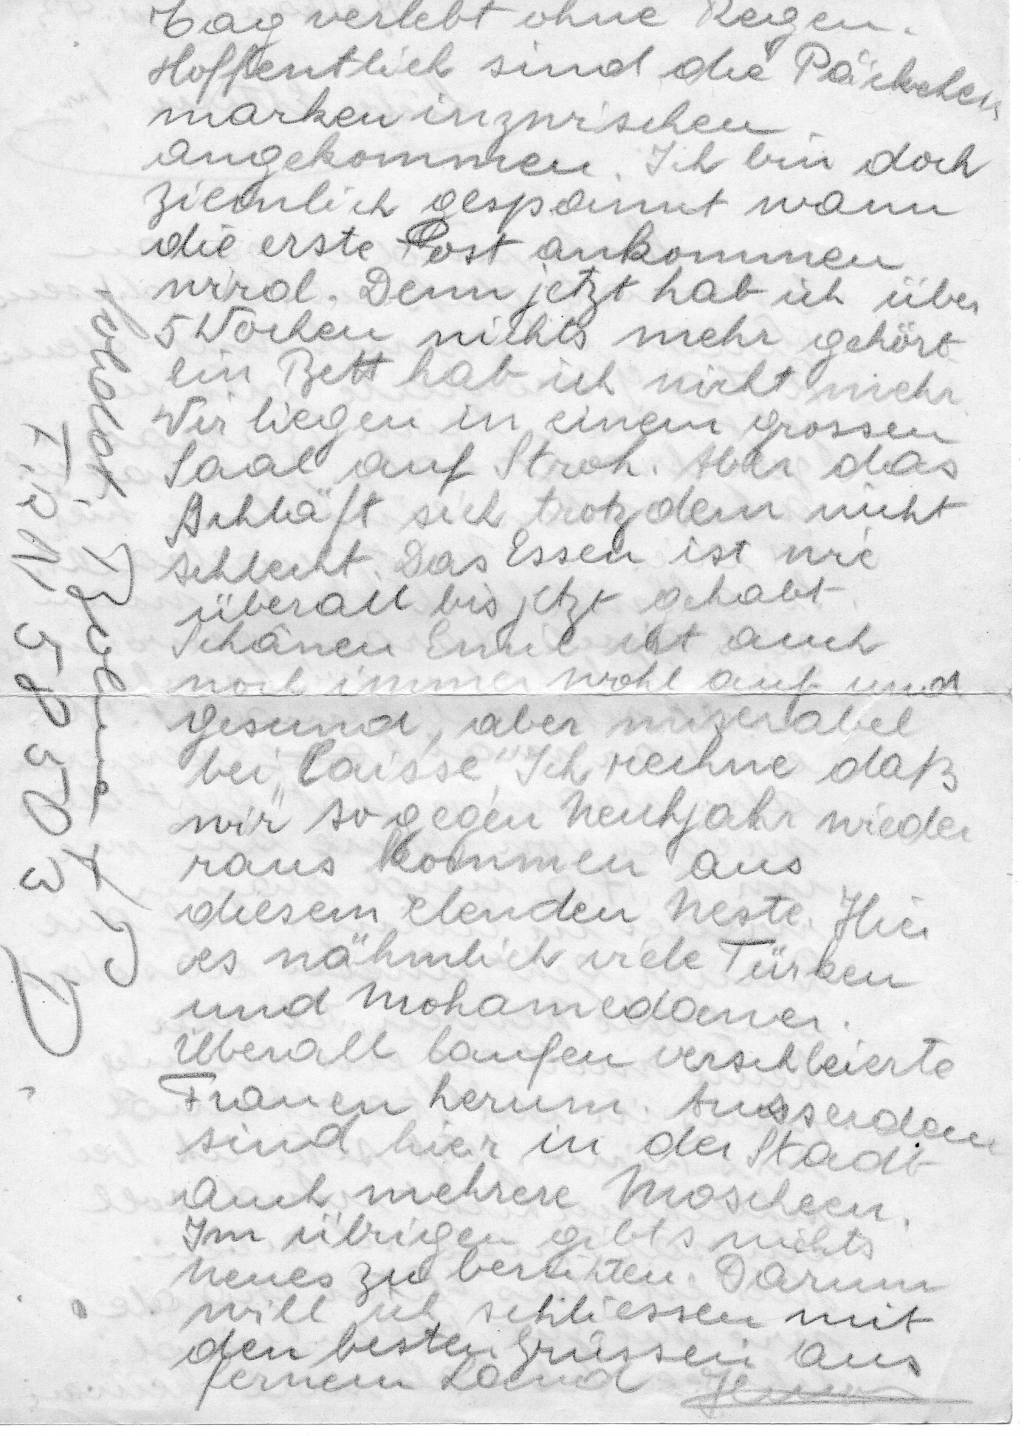 Tag verlebt ohne Regen.
Hoffentlich sind die Päckchen
marken inzwischen
angekommen. Ich bin doch
ziemlich gespannt wann
die erste Post ankommen
wird. Denn jetzt hab ich über
5 Wochen nichts mehr gehört
ein Bett hab ich nicht mehr
Wir liegen in einem grossen
Saal auf Stroh. Aber das
schläft sich trotzdem nicht
schlecht. Das Essen ist wie
überall bis jetzt gehabt.
Schänen Emil ist auch
noch immer wohl auf und
gesund, aber miserabel
bei "Caisse" Ich rechne daß
wir so gegen Neuhjahr wieder
raus kommen aus
diesem elenden Neste. Hier
es nähmlich viele Türken
und Mohamedaner.
Überall laufen verschleierte
Frauen herum. Ausserdem
sind hier in der Stadt
auch mehrere Moscheen.
Im übrigen gibt's nichts
neues zu berichten. Darum
will ich schliessen mit
den besten Grüssen aus
fernem Land
Soldat
F.P.N. 58503